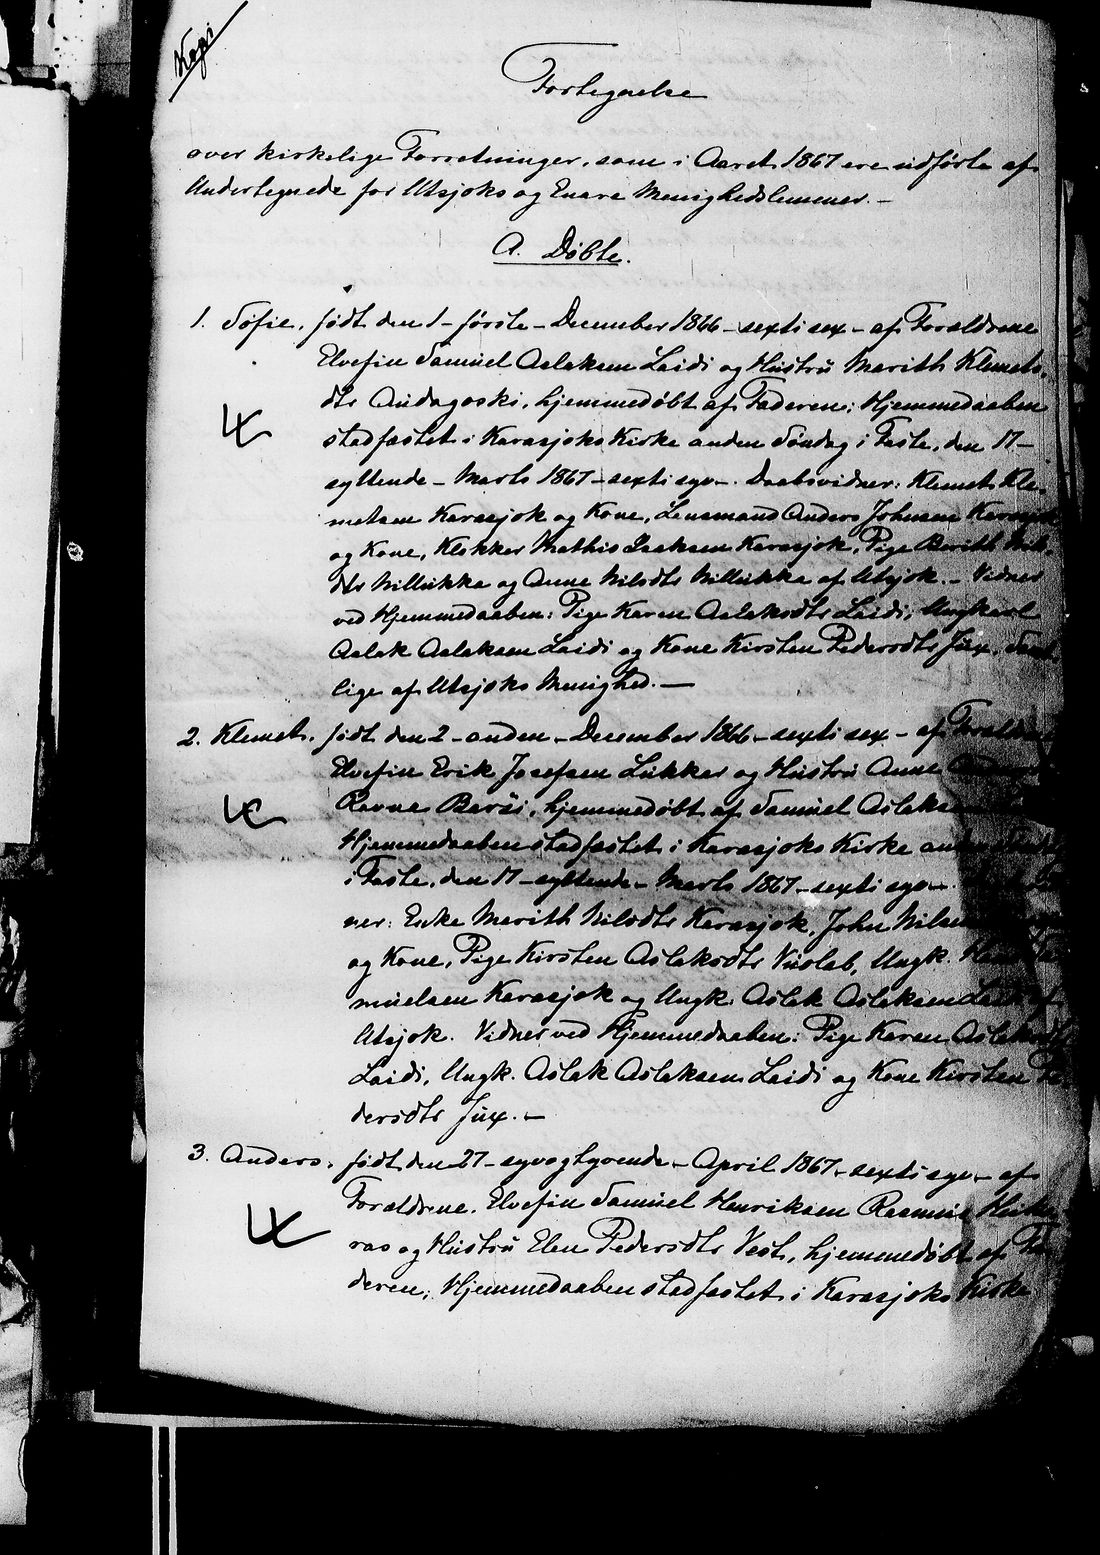 Kopi
Fortegnelse
over kirkelige Forretninger, som i Aaret 1867 ere udførte af
Undertegnede for Utsjoks og Enare Menighedslemmer. –
A. Döbte.
1. Sofie, født den 1 – første – December 1866 – sexti sex – af Forældrene
Elvefin Samuel Aslaksen Laidi og Hustrü Marith Klemets-
dtr Aüdagoski, hjemmedøbt af Faderen; Hjemmedaaben
stadfæstet i Karasjoks Kirke anden Søndag i Faste, den 17 –
syttende – Marts 1867 – sexti syv –. Daabsvidner: Klemet Kle-
metsen Karasjok og Kone, Lensmand Anders Johnsen Karasjok
og Kone, Klokker Mathis Isaksen Karasjok, Pige Berith Nils-
dtr Nillükka og Anne Nilsdtr Nillükka af Utsjok. – Vidner
ved Hjemmedaaben: Pige Karen Aslaksdtr Laidi, Ungkarl
Aslak Aslaksen Laidi og Kone Kirsten Pedersdtr Jüx. Samt-
lige af Utsjoks Menighed. –
2. Klemet, født den 2 – anden – December 1866 – sexti sex – af Forældrene
Elvefin Erik Josefsen Lükkar og Hüstrü Anne
Ravna Barsi, hjemmedøbt af Samüel Aslaksen
Hjemmedaaben stadfæstet i Karasjoks Kirke anden Søndag
i Faste, den 17 – syttende – Marts 1867 – sexti syv –.
ner: Enke Marith Nilsdtr Karasjok, John Nilsen
og Kone, Pige Kirsten Aslaksdtr Vüolab, Ungk. Hans Sa-
müelsen Karasjok og Ungk. Aslak Aslaksen Laidi af
Utsjok. Vidner ved Hjemmedaaben: Pige Karen Aslaksdtr
Laidi, Ungk. Aslak Aslaksen Laidi og Kone Kirsten Pe-
dersdtr Jüx. –
3. Anders, født den 27 – syvogtyvende – April 1867 – sexti syv – af
Forældrene, Elvefin Samüel Henriksen Rasmüs
ras og Hüstrü Elen Pedersdtr Vest, hjemmedøbt af Fa-
deren; Hjemmedaaben stadfæstet i Karasjoks Kirke